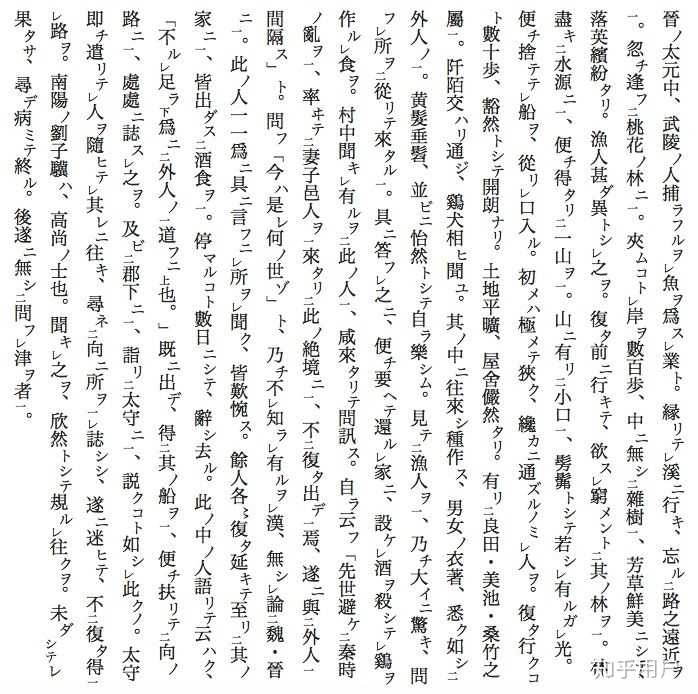 晉ノ太元中、武陵ノ人捕ラフルヲレ魚ヲ爲スレ業ト。縁リテレ溪ニ行キ、忘ル二路之遠近ヲ
一。忽チ逢フ二桃花ノ林ニ一。夾ムコトレ岸ヲ數百歩、中ニ無シ二雜樹一、芳草鮮美ニシテ、
落英繽紛タリ。漁人甚ダ異トシレ之ヲ。復タ前ニ行キテ、欲スレ窮メント二其ノ林ヲ一。林
盡キ二水源ニ一、便チ得タリ二一山ヲ一。山ニ有リ二小口一、髣髴トシテ若シレ有ルガレ光。
便チ捨テテレ船ヲ、從リレ口入ル。初メハ極メテ狹ク、纔カニ通ズルノミレ人ヲ。復タ行クコ
ト數十歩、豁然トシテ開朗ナリ。土地平曠、屋舍儼然タリ。有リ二良田・美池・桑竹之
屬一。阡陌交ハリ通ジ、鷄犬相ヒ聞ユ。其ノ中ニ往來シ種作ス、男女ノ衣著、悉ク如シ二
外人ノ一。黄髮垂髫、並ビニ怡然トシテ自ラ樂シム。見テ二漁人ヲ一、乃チ大イニ驚キ、問
フレ所ヲ二從リテ來タル一。具ニ答フレ之ニ、便チ要ヘテ還ルレ家ニ、設ケレ酒ヲ殺シテレ鷄ヲ
作ルレ食ヲ。村中聞キレ有ルヲ二此ノ人一、咸來タリテ問訊ス。自ラ云フ「先世避ケ二秦時
ノ亂ヲ一、率ヰテ二妻子邑人ヲ一來タリ二此ノ絶境ニ一、不二復タ出デ一焉、遂ニ與二外人一
間隔ス」ト。問フ「今ハ是レ何ノ世ゾ」ト、乃チ不レ知ラレ有ルヲレ漢、無シレ論二魏・晉
ニ一。此ノ人一一爲ニ具ニ言フニレ所ヲレ聞ク、皆歎惋ス。餘人各〻復タ延キテ至リ二其ノ
家ニ一、皆出ダス二酒食ヲ一。停マルコト數日ニシテ、辭シ去ル。此ノ中ノ人語リテ云ハク、
「不ルレ足ラ下爲ニ二外人ノ一道フニ上也。」既ニ出デ、得二其ノ船ヲ一、便チ扶リテ二向ノ
路ニ一、處處ニ誌スレ之ヲ。及ビ二郡下ニ一、詣リ二太守ニ一、説クコト如シレ此クノ。太守
即チ遣リテレ人ヲ隨ヒテレ其レニ往キ、尋ネ二向ニ所ヲ一レ誌シシ、遂ニ迷ヒテ、不二復タ得一
レ路ヲ。南陽ノ劉子驥ハ、高尚ノ士也。聞キレ之ヲ、欣然トシテ規ルレ往クヲ。未ダシテレ
果タサ、尋デ病ミテ終ル。後遂ニ無シ二問フレ津ヲ者一。
知乎用户